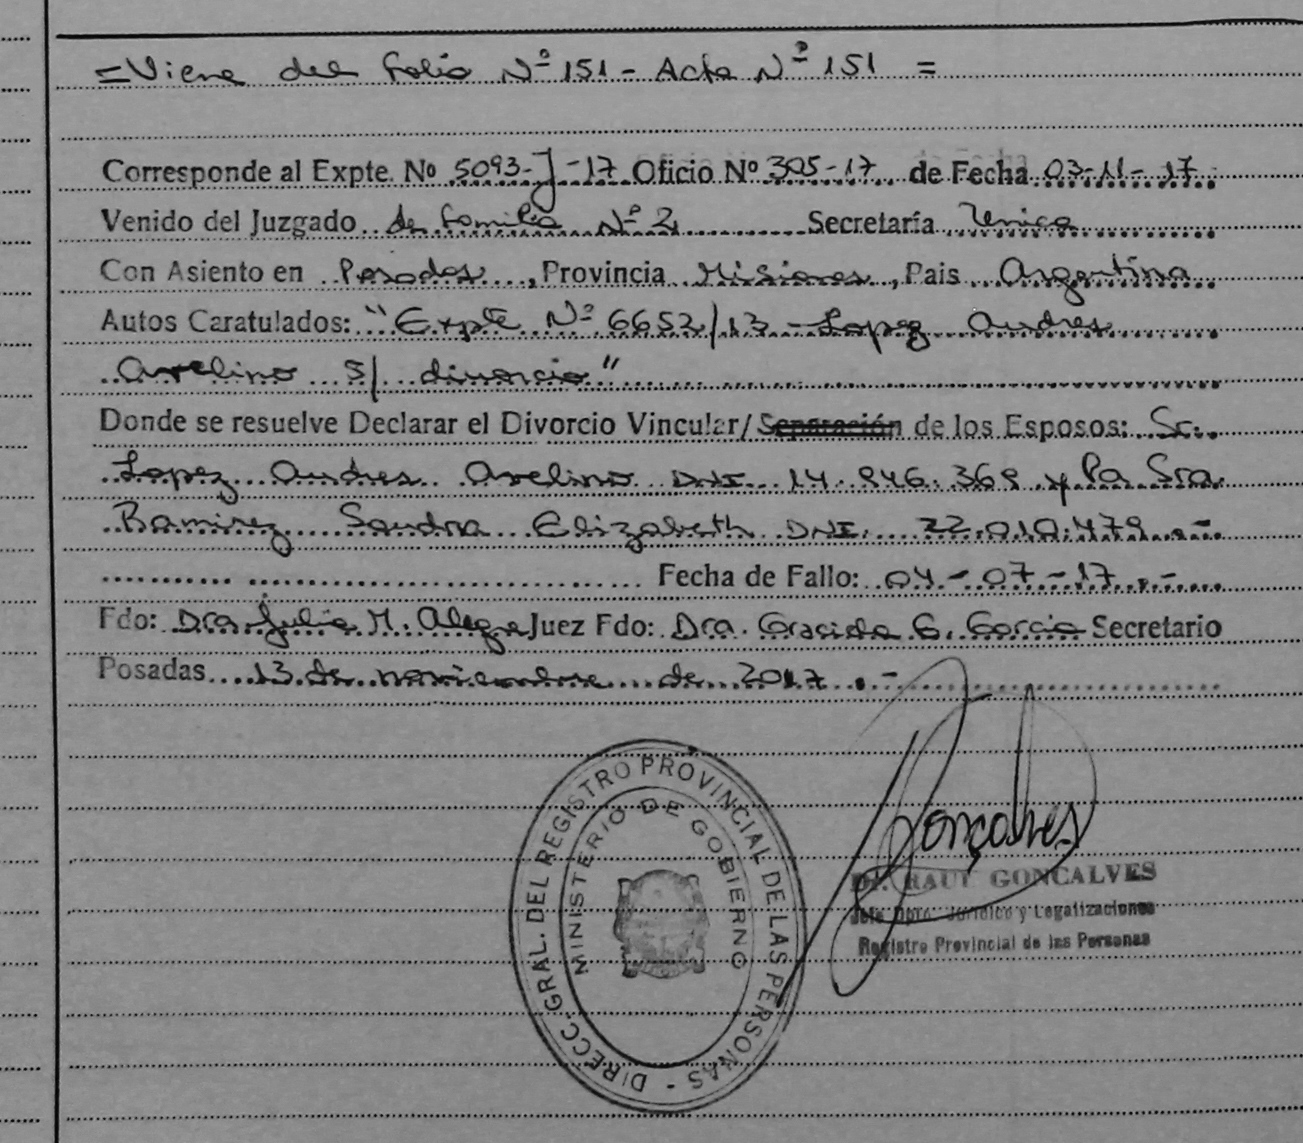 = Viene del folio Nº 151 - Acta Nº 151 =
Corresponde al Expte. Nº 5093-J-17 Oficio Nº 305-17 de Fecha 03-11-17
Venido del Juzgado de familia Nº 2 Secretaría Unica
Con Asiento en Posadas, Provincia Misiones, Pais Argentina
Autos Caratulados: "Expte Nº 6652/13 - Lopez Andres
Avelino s/ divorcio"
Donde se resuelve Declarar el Divorcio Vincular/Separación de los Esposos: Sr.
Lopez Andres Avelino DNI 14.946.369 y la Sra
Ramirez Sandra Elizabeth DNI. 22.010.479.-
Fecha de Fallo: 04-07-17.-
Fdo: Dra Julia M. Alegre Juez Fdo: Dra. Graciela G. Garcia Secretario
Posadas 13 de noviembre de 2017.-
DIRECC. GRAL. DEL REGISTRO PROVINCIAL DE LAS PERSONAS -
MINISTERIO DE GOBIERNO
Gonçalves
Dr. RAUL GONCALVES
Jefe Dpto. Jurídico y Legalizaciones
Registro Provincial de las Personas